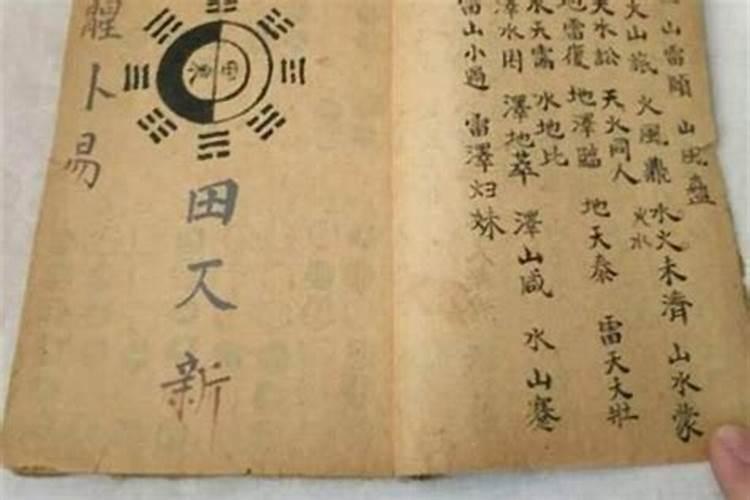 山雷頤
山風蠱
火山旅
火風鼎
火水
水火未濟
山水蒙
天水訟
天火同人
地雷復
地澤臨
地天泰
雷天大壯
水天需
水地比
澤水困
澤地萃
澤山咸
水山蹇
雷山小過
雷澤归妹
田
田
新
卜易